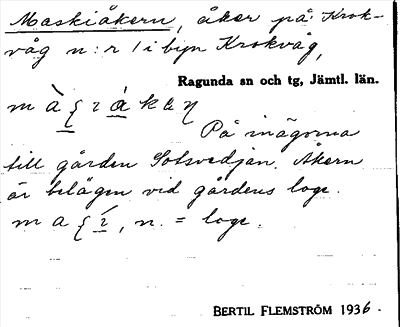 Maskiåkern, åker på Krok-
våg n:r 1 i byn Krokvåg,
Ragunda sn och tg, Jämtl. län.
På inägorna
till gården Solsvedjan. Åkern
är belägen vid gårdens loge.
n. = loge.
BERTIL FLEMSTRÖM 1936.